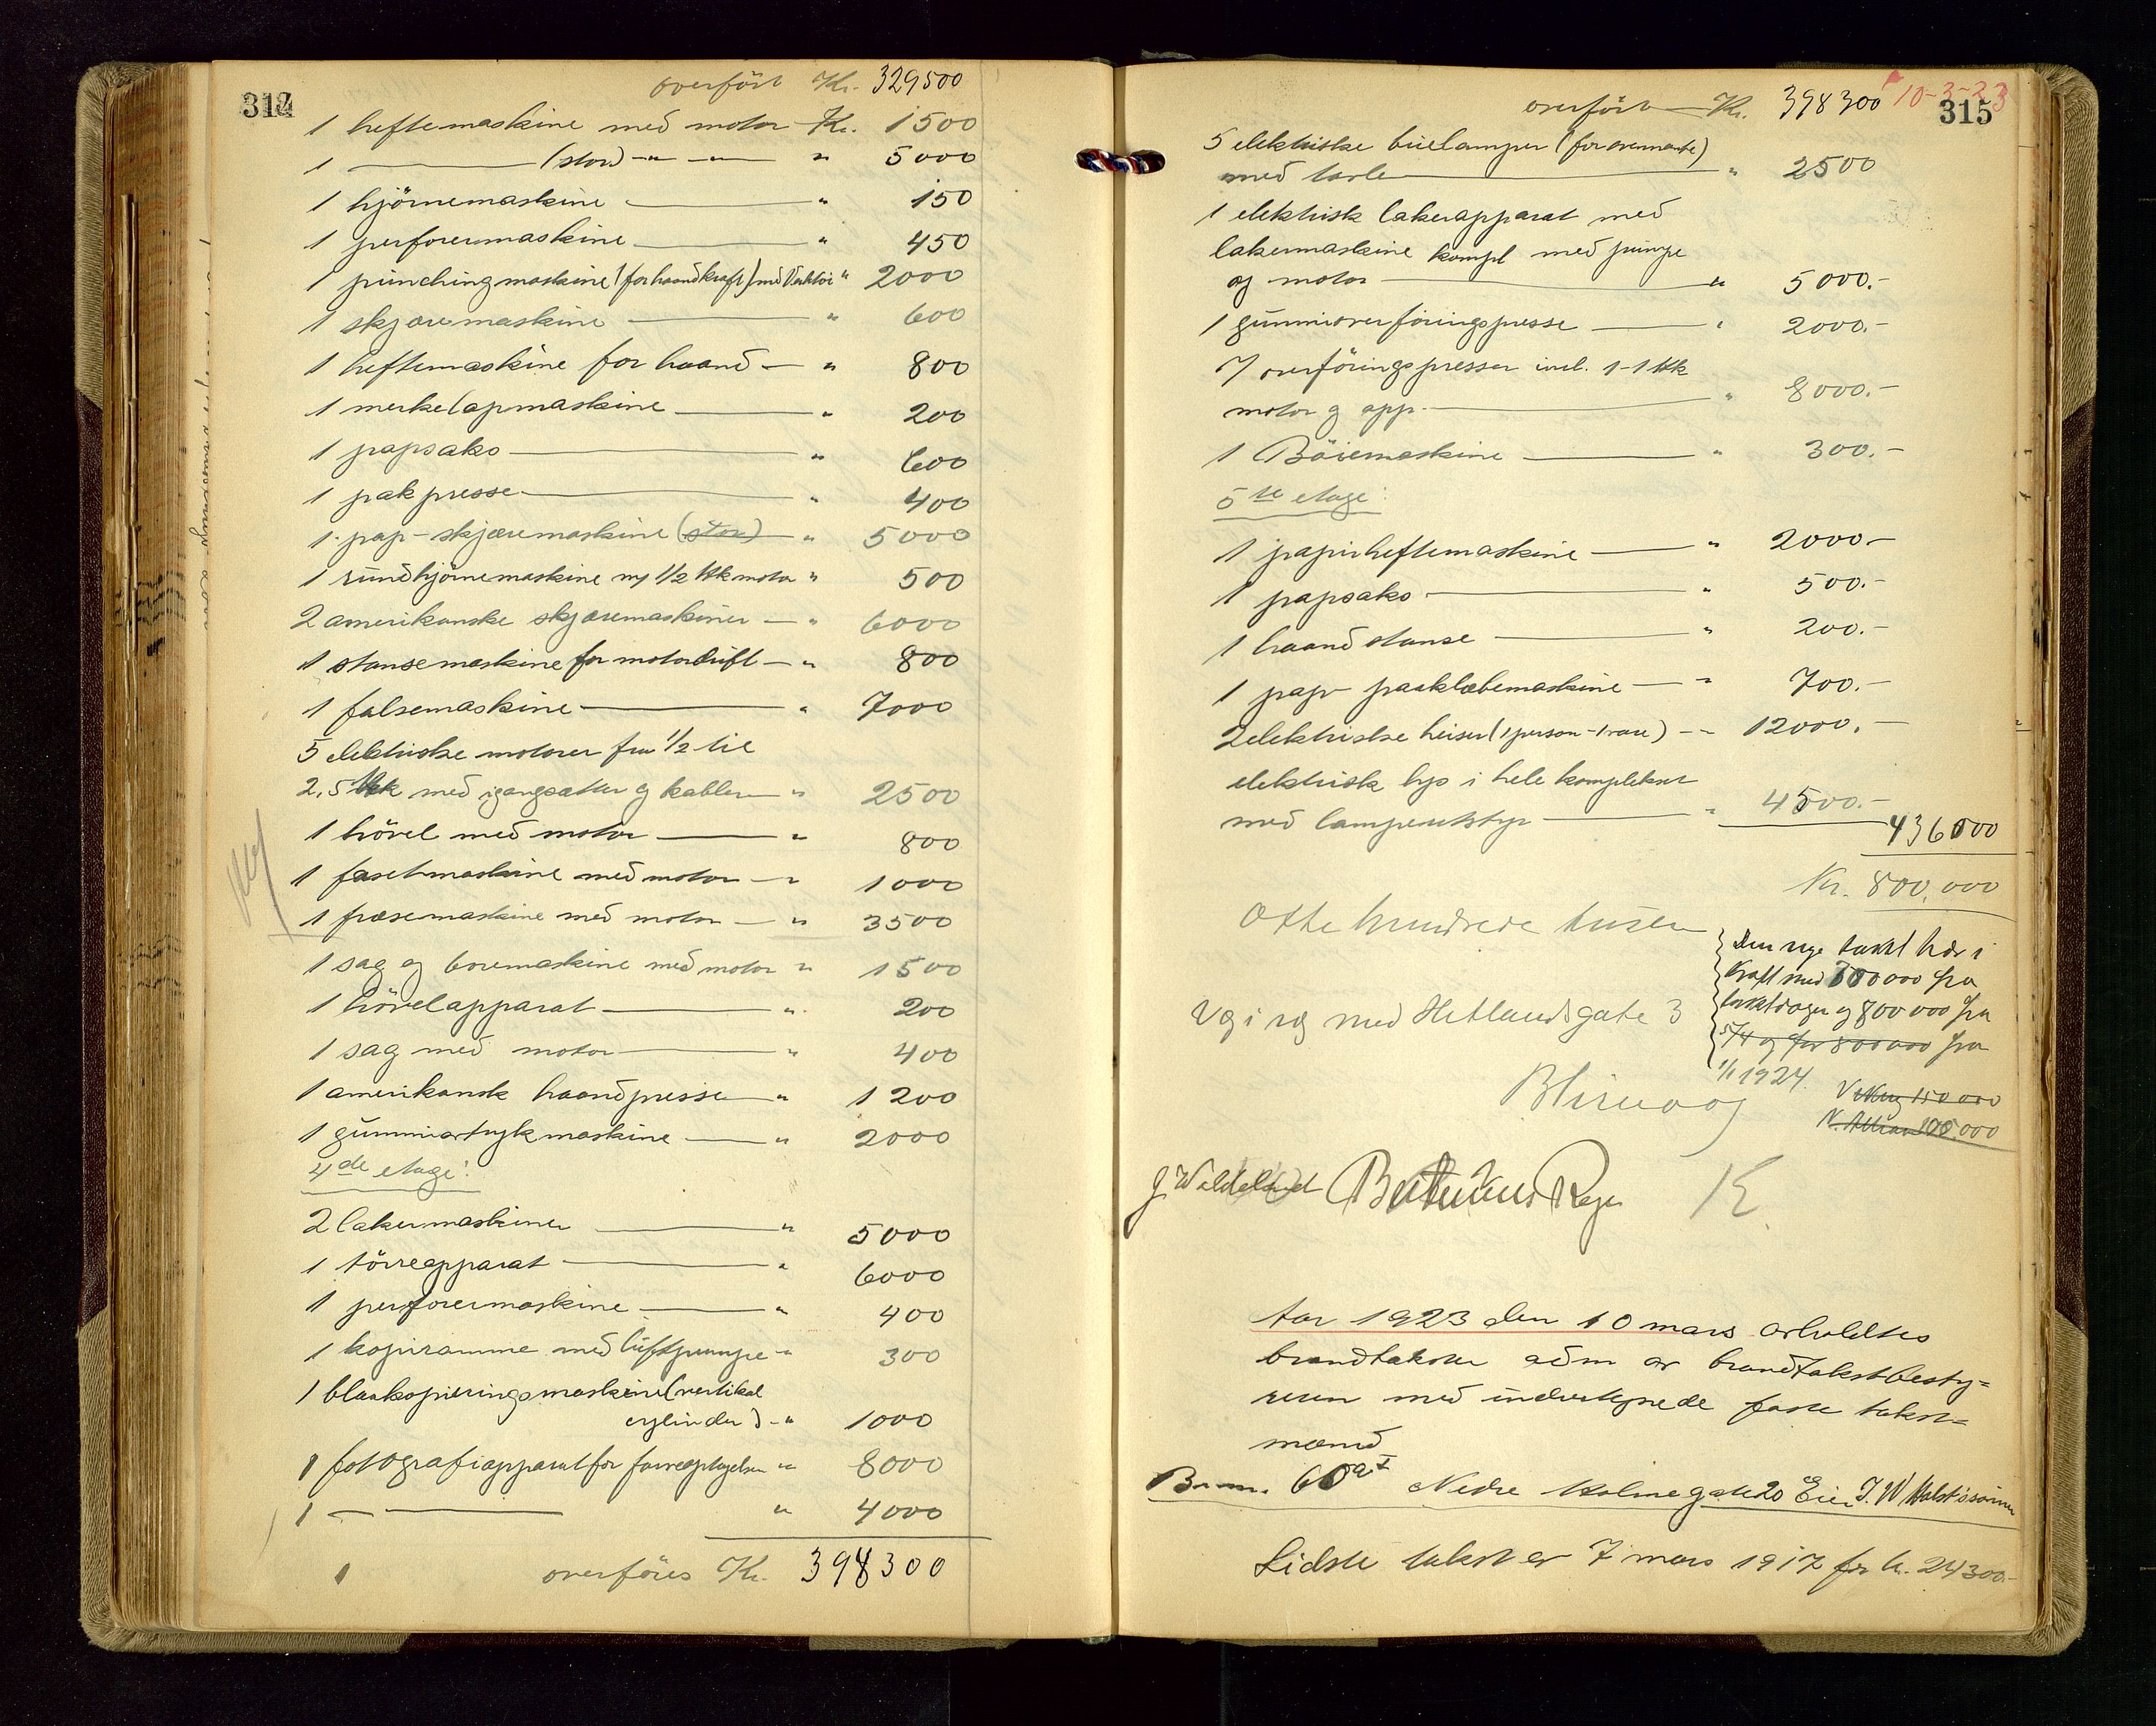 314
overført Kr. 329500
1 heftemaskine med motor Kr. 1500
1 ——— (stor) -"- -"- " 5000
1 hjörnemaskine " 150
1 perforermaskine " 450
1 punchingmaskine (for haandkraft) med " 2000
1 skjæremaskine " 600
1 heftemaskine for haand " 800
1 merkelapmaskine " 200
1 papsaks " 600
1 pakpresse " 400
1 pap-skjæremaskine (stor) " 5000
1 rundhjörnemaskine m/ 1/2 Hk motor " 500
2 amerikanske skjæremaskiner " 6000
1 stansemaskine for motordrift " 800
1 falsemaskine " 7000
5 elektriske motorer fra 1/2 til
2,5 Hk med igangsætter og kabler " 2500
1 hövel med motor " 800
1 fasetmaskine med motor " 1000
1 fræsemaskine med motor " 3500
1 sag og boremaskine med motor " 1500
1 hövelapparat " 200
1 sag med motor " 400
1 amerikansk haandpresse " 1200
1 gummiavtrykmaskine " 2000
4de etage:
2 lakermaskiner " 5000
1 törreapparat " 6000
1 perforermaskine " 400
1 kopiramme med luftpumpe " 300
1 blaakopieringsmaskine (vertikal
cylinder) " 1000
1 fotografiapparat for farveoptagelser " 8000
1 — ——— " 4000
overføres Kr. 398300
10-3-23
315
overført Kr. 398300
5 elektriske buelamper (for ovennævnte)
med tavle " 2500
1 elektrisk lakerapparat med
lakermaskine kompl med pumpe
og motor " 5000.-
1 gummioverföringspresse " 2000.-
7 overföringspresser incl. 1-1 Hk
motor og app. " 8000.-
1 Böiemaskine " 300.-
5te etage:
1 papirheftemaskine " 2000.-
1 papsaks " 500.-
1 haandstanse " 200.-
1 pap- paaklæbemaskine " 700.-
2 elektriske heiser (1 person - 1 vare) " 12000.-
elektrisk lys i hele komplekset
med lampeutstyr " 4500.-
436000
Kr. 800,000
Otte hundrede tusen
Den nye takst trær i
kraft med 700000 fra
takstdagen og 800000 fra
5/4 og for 800000 fra
1/1 1924.
V og i v og med Hetlandsgate 3
150 000
000
K
Aar 1923 den 10 mars avholdtes
brandtakster adm av brandtakstbesty=
reren med undertegnede faste takst=
mænd
Br.nr. 60 a I Nedre Holmegate 20 Eier J. W. Halstssönner
Sidste takst er 7 mars 1917 for kr. 24300.-